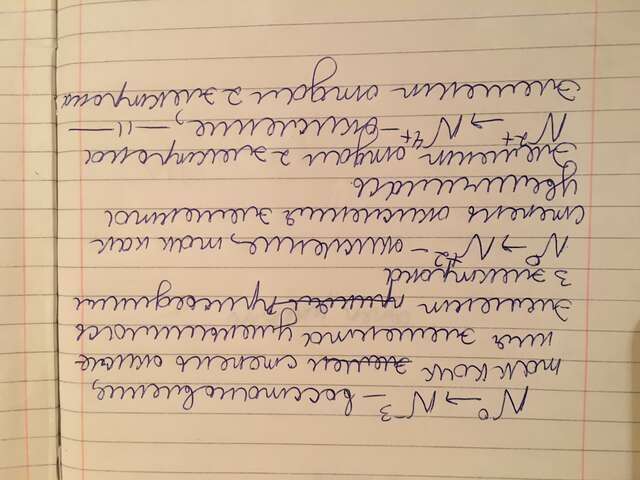 N⁰ → N⁻³ – восстановление,
так как элемен степень окисле
ния элемента уменьшилась
элемент присоединил
3 электрона
N⁰ → N⁺² – окисление, так как
степень окисления элемента
увеличилась
Элемент отдал 2 электрона
N²⁺ → N⁴⁺ – окисление, –॥–
Элемент отдал 2 электрона